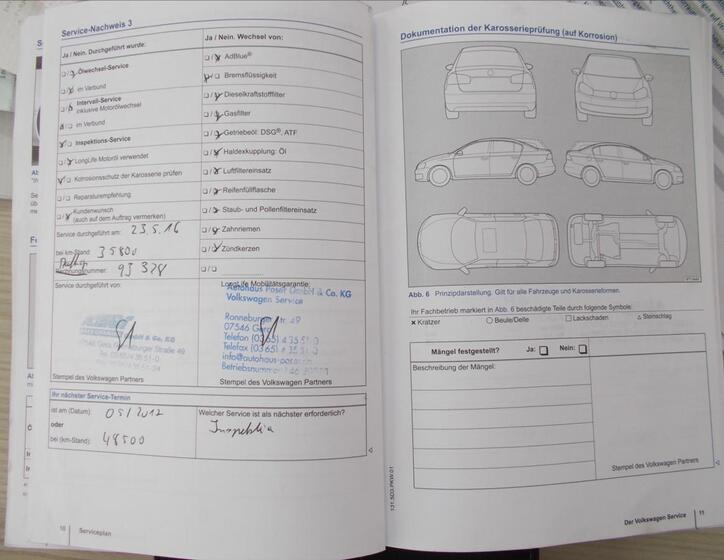 Service-Nachweis 3
Ja / Nein. Durchgeführt wurde:
Ölwechsel-Service
im Verbund
Intervall-Service
inklusive Motorölwechsel
im Verbund
Inspektions-Service
LongLife Motoröl verwendet
Korrosionsschutz der Karosserie prüfen
Reparaturempfehlung
Kundenwunsch
(auch auf dem Auftrag vermerken)
Service durchgeführt am: 23.5.16
bei km-Stand: 35800
Rechnungsnummer: 93328
Service durchgeführt von:
Stempel des Volkswagen Partners
Ja / Nein. Wechsel von:
AdBlue®
Bremsflüssigkeit
Dieselkraftstofffilter
Gasfilter
Getriebeöl: DSG®, ATF
Haldexkupplung: Öl
Luftfiltereinsatz
Reifenfüllflasche
Staub- und Pollenfiltereinsatz
Zahnriemen
Zündkerzen
LongLife Mobilitätsgarantie:
Autohaus Poser GmbH & Co. KG
Volkswagen Service
Ronneburger Str. 49
07546 Gera
Telefon (0365)
Telefax (0365)
Stempel des Volkswagen Partners
Ihr nächster Service-Termin
ist am (Datum): 05/2017
oder
bei (km-Stand): 48500
Welcher Service ist als nächster erforderlich?
Inspektion
10 Serviceplan
Dokumentation der Karosserieprüfung (auf Korrosion)
Abb. 6 Prinzipdarstellung. Gilt für alle Fahrzeuge und Karosserieformen.
Ihr Fachbetrieb markiert in Abb. 6 beschädigte Teile durch folgende Symbole:
× Kratzer ○ Beule/Delle □ Lackschaden △ Steinschlag
Mängel festgestellt? Ja: Nein:
Beschreibung der Mängel:
Stempel des Volkswagen Partners
131.5D3.PKW.01
Der Volkswagen Service 11